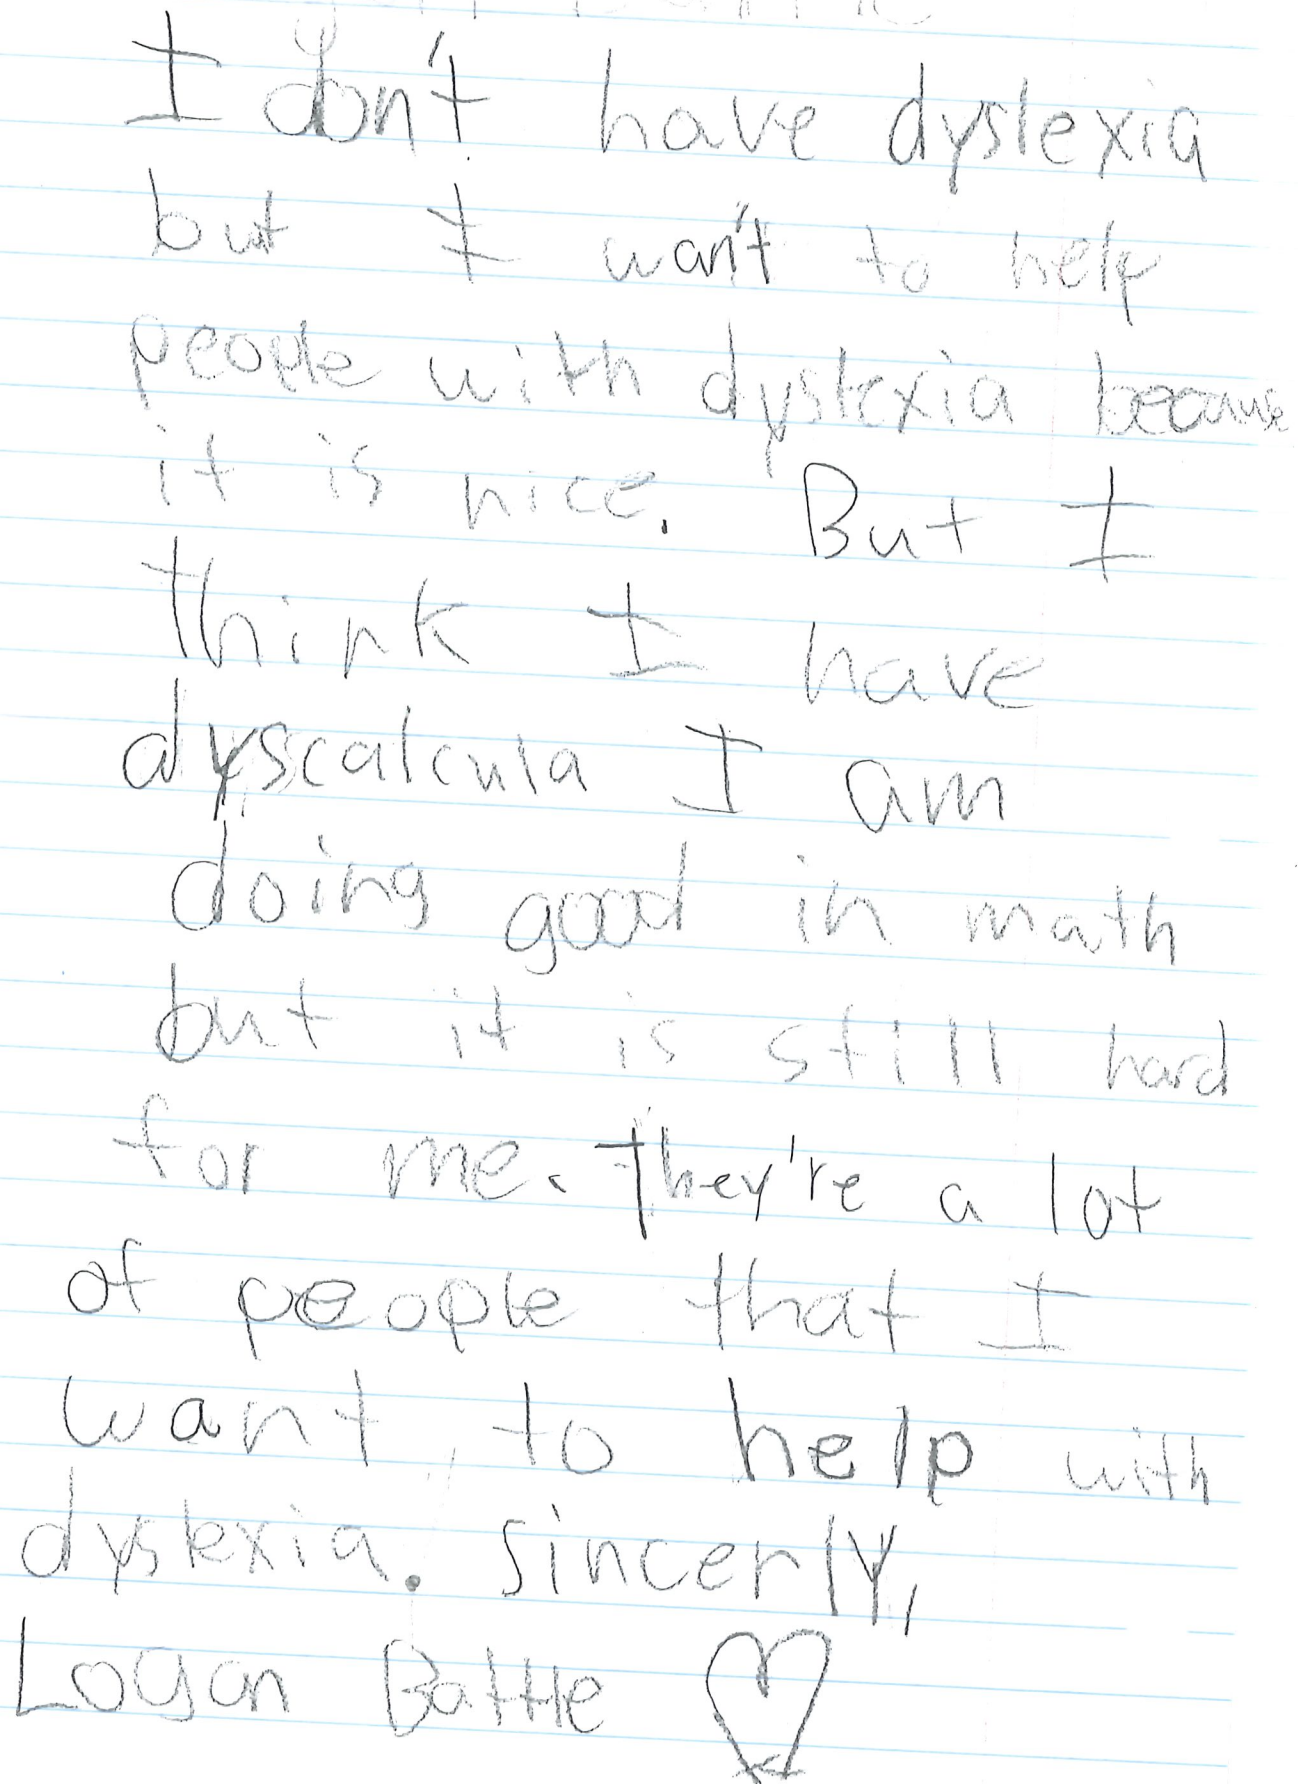 I don't have dyslexia
but I wan't to help
people with dyslexia because
it is nice. But I
think I have
dyscalcula I am
doing good in math
but it is still hard
for me. They're a lot
of people that I
want to help with
dyslexia. Sincerly,
Logan Battle